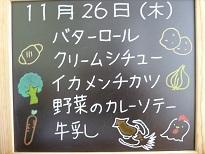 11月26日(木)
バターロール
クリームシチュー
イカメンチカツ
野菜のカレーソテー
牛乳